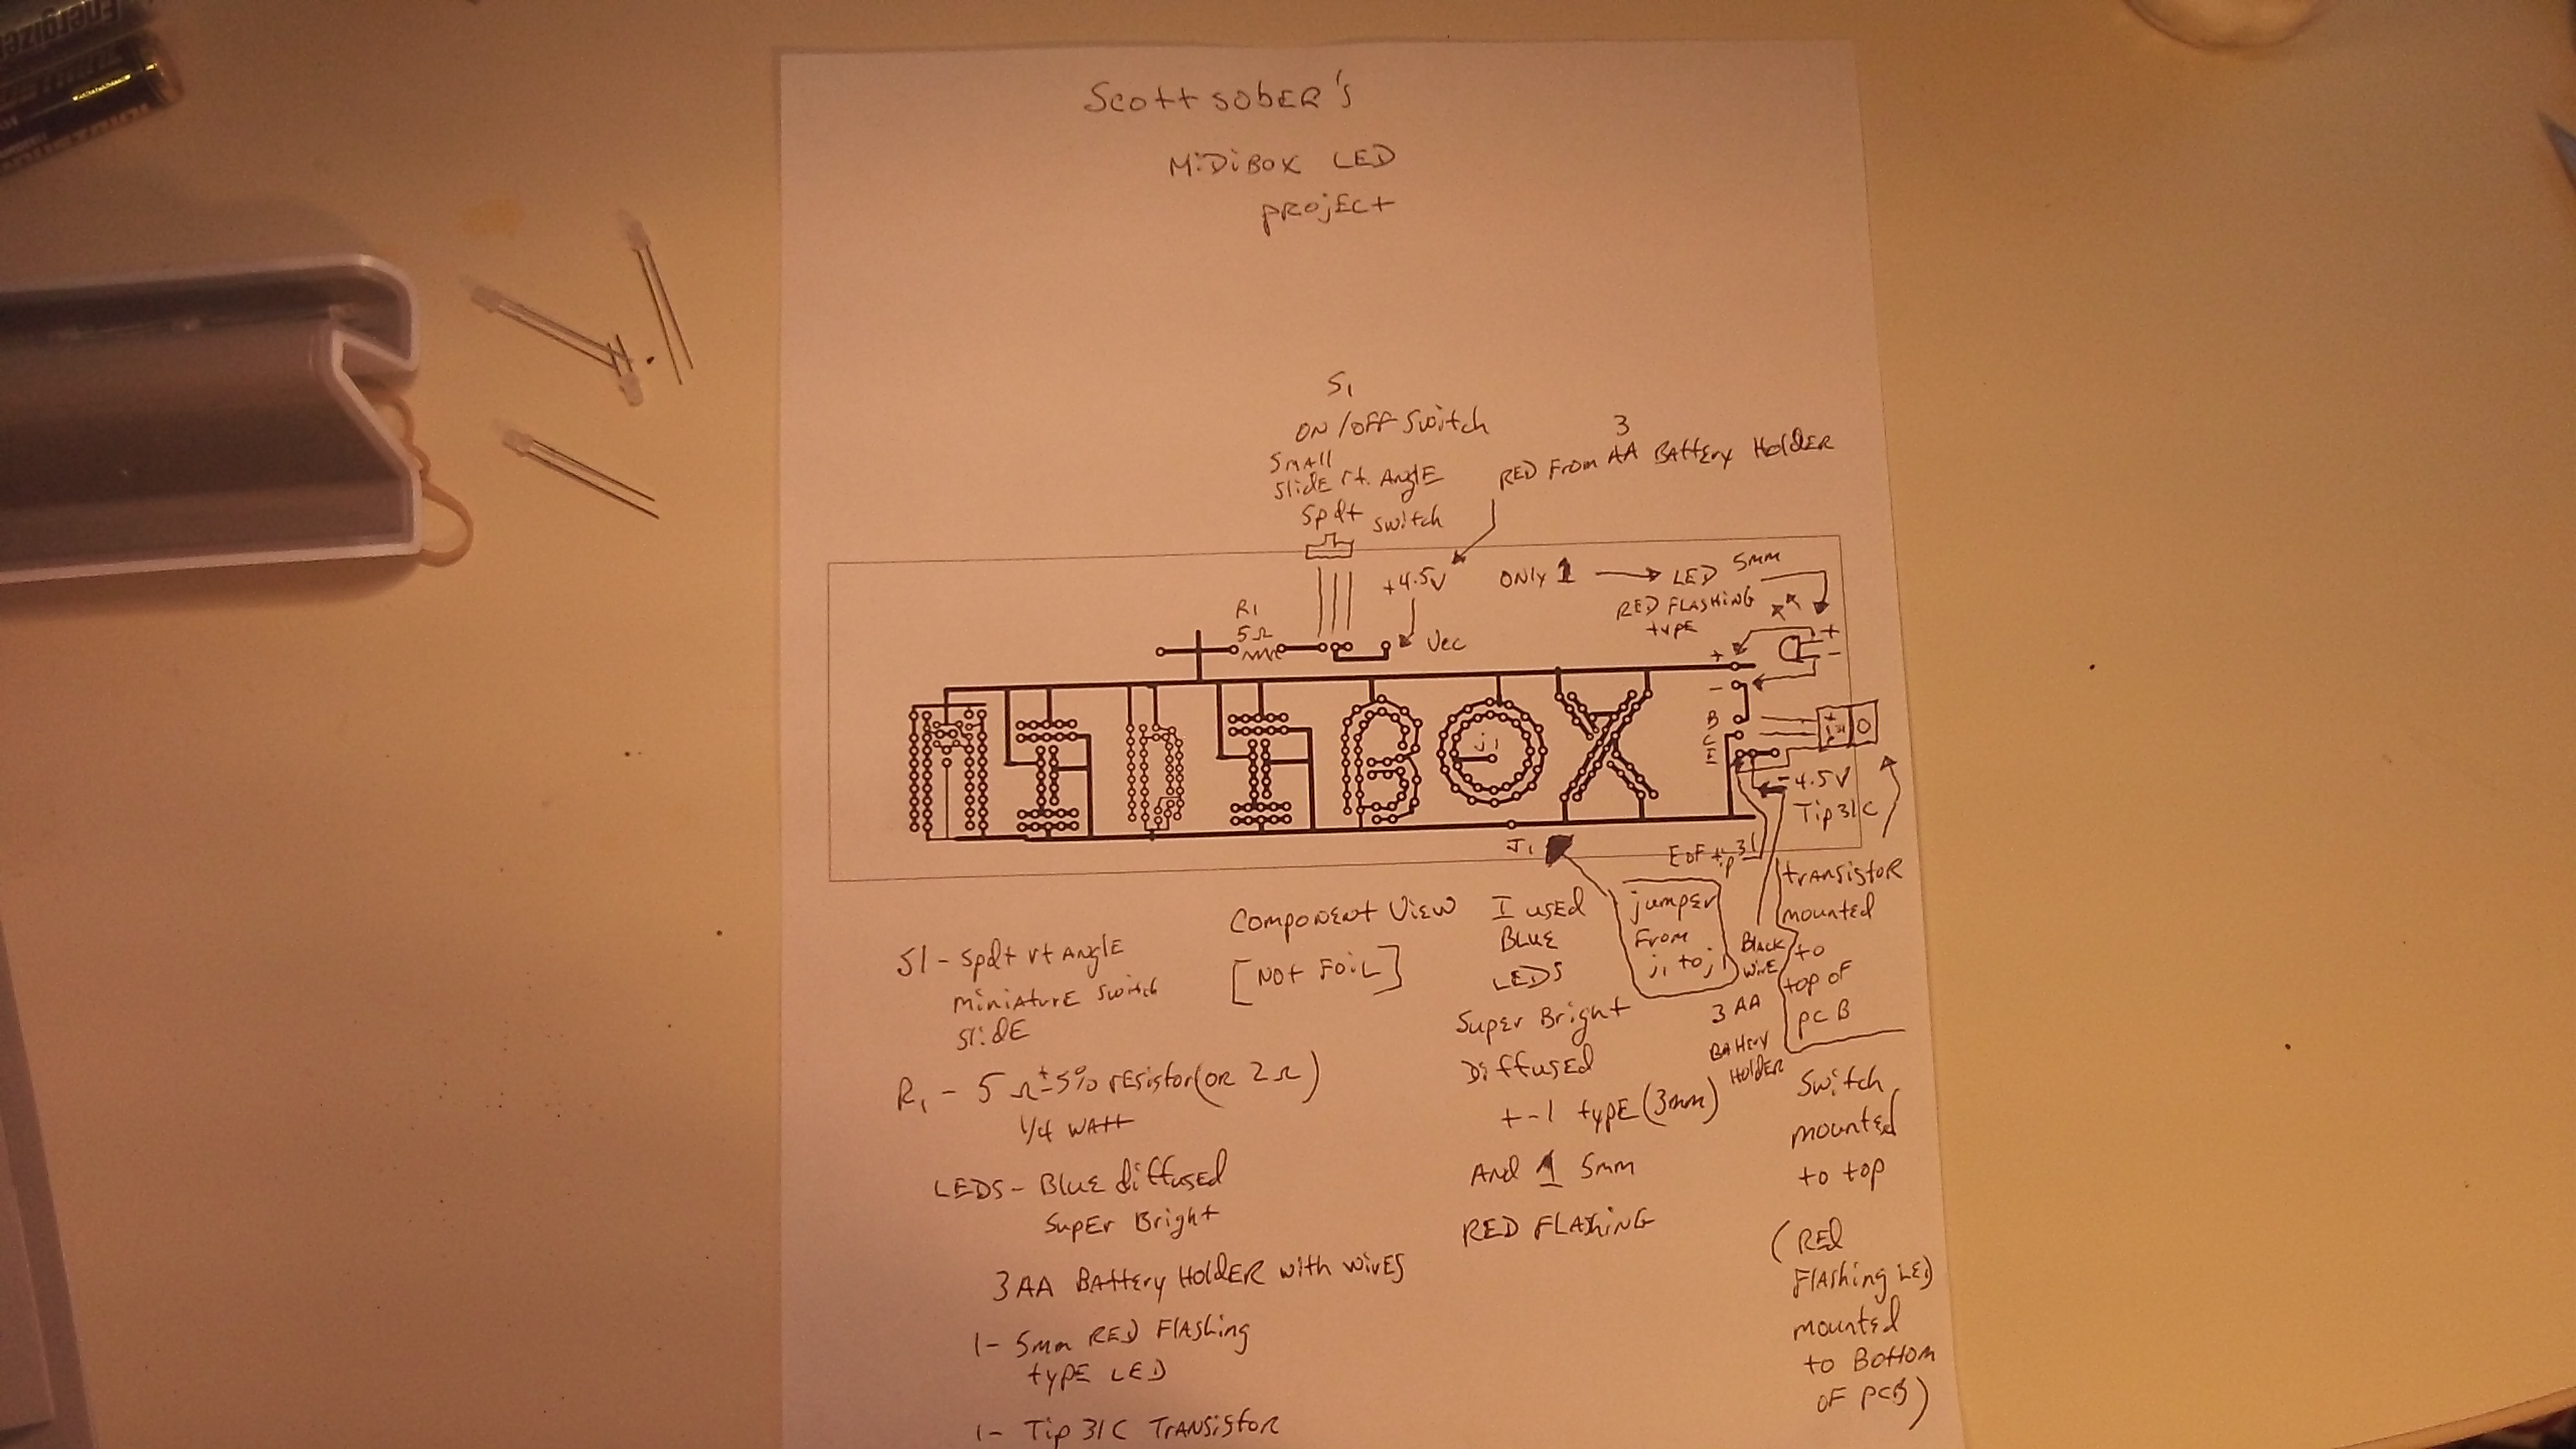 Energizer
Scottsober's
MiDiBOX LED
PROjECt
S1
ON/OFF Switch
SMAll
SlidE rt. AnglE
Spdt switch
3
RED From AA BAttEry HoldER
+4.5V
ONly 1
LED 5mm
RED FLASHING
type
R1
5Ω
Vcc
+
-
+
-
B
C
E
j1
-4.5V
Tip31C
J1
E OF tip31
transistoR
mounted
to
top of
pcB
jumper
From
j1 to j1
BlAck
wirE
3 AA
BAttEry
HoldER
ComponEnt ViEw
[Not FoiL]
I usEd
BLUE
LEDS
SupEr Bright
Diffused
+-1 typE (3mm)
And 1 5mm
RED FLAShiNG
S1 - Spdt rt AnglE
MiniAturE Switch
SlidE
R1 - 5 Ω ±5% rEsistor (OR 2 Ω)
1/4 WAtt
LEDS - BluE diffusEd
SupEr Bright
3 AA BAttEry HoldER with wirES
1- 5mm RED FlAshing
typE LED
1- Tip 31C TrANSistoR
Switch
mounted
to top
(REd
FlAshing LED
mountEd
to Bottom
OF pCB)